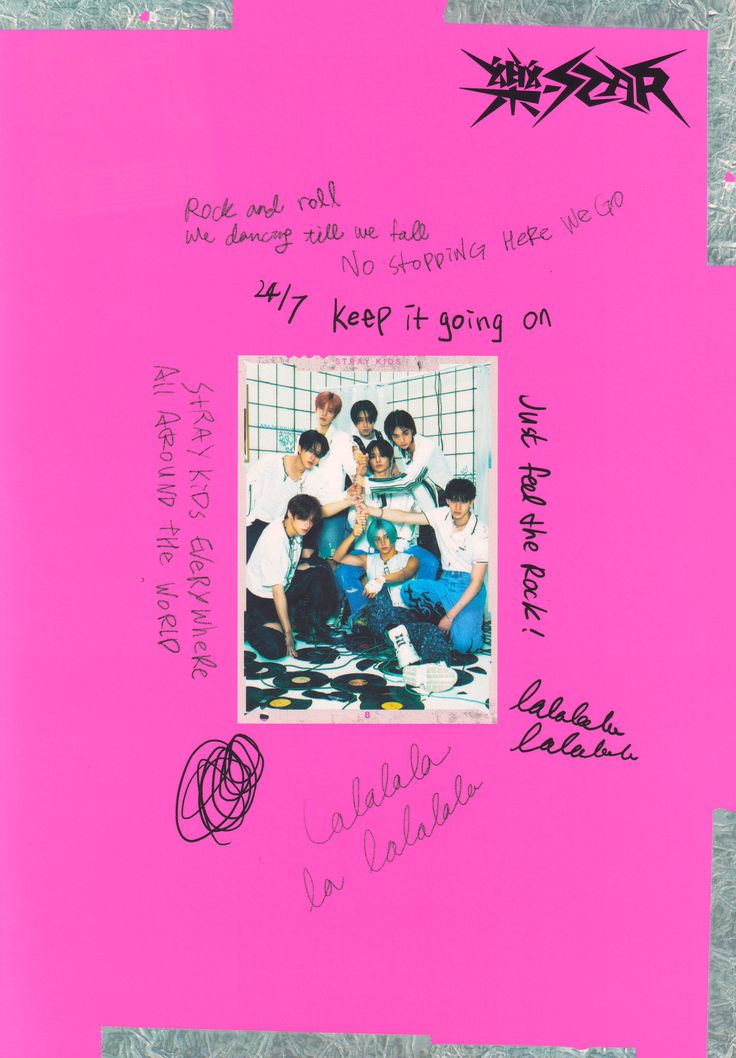 樂-STAR
Rock and roll
We dancing till we fall
No stopping Here We Go
24/7 keep it going on
STRAY KIDS
Stray Kids Everywhere
All Around the World
Just feel the Rock!
lalalala
lalalala
Lalalala
la lalalala
8